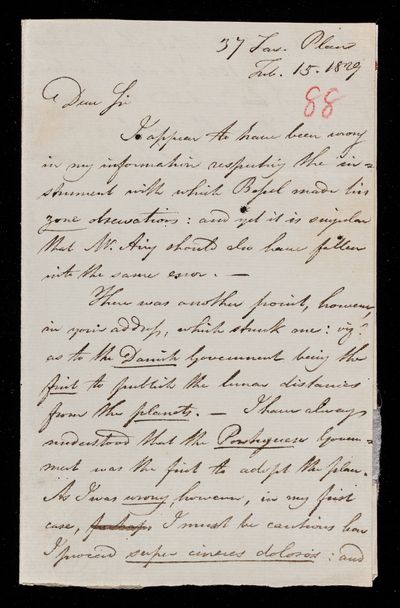 37 Tav. Place
Feb. 15. 1829
88
Dear Sir
I appear to have been wrong
in my information respecting the in=
strument with which Bessel made his
zone observations: and yet it is singular
that Mr. Airy should also have fallen
into the same error. —
There was another point, however,
in your address, which struck me: viz.
as to the Danish Government being the
first to publish the lunar distances
from the planets. — I have always
understood that the Portuguese Govern=
ment was the first to adopt the plan.
As I was wrong, however, in my first
case, perhaps I must be cautious how
I proceed super cineres dolosos: and